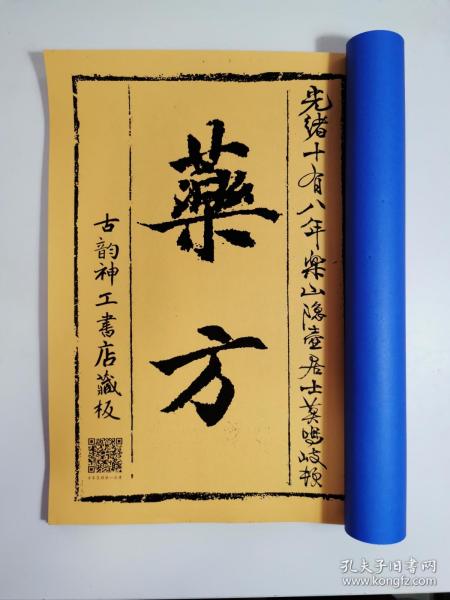 光绪十有八年乐山隐壶居士莫鸣岐顿
藥方
古韵神工書店藏板
孔夫子旧书网
www.kongfz.com